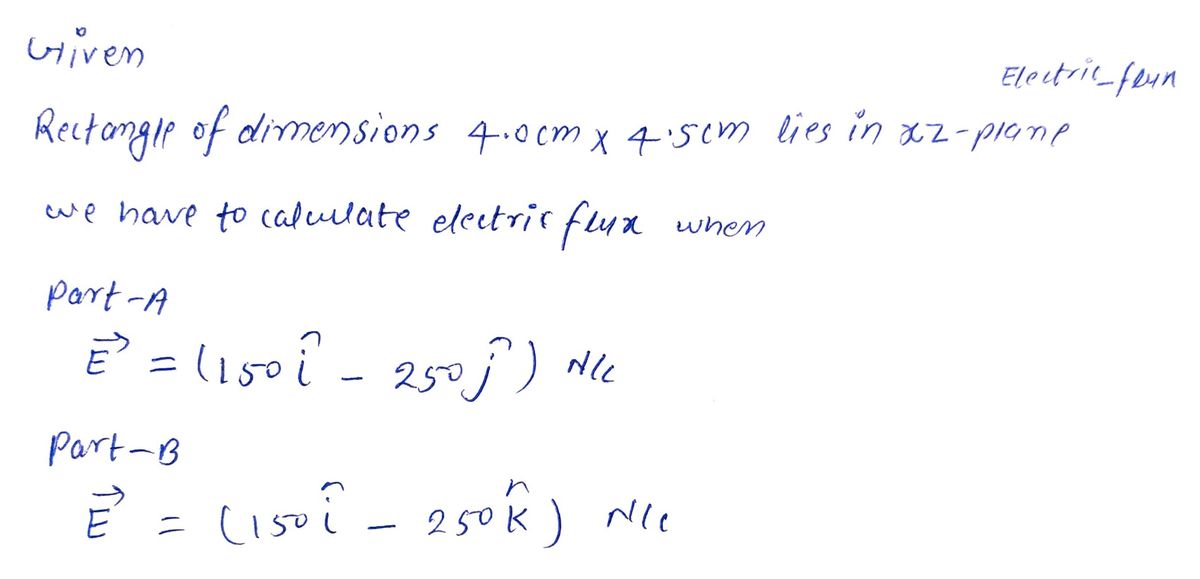 Given
Electric flux
Rectangle of dimensions 4.0cm x 4.5cm lies in xz-plane
we have to calculate electric flux when
Part-A
E⃗ = (150 î - 250 ĵ) N/C
Part-B
E⃗ = (150 î - 250 k̂) N/C